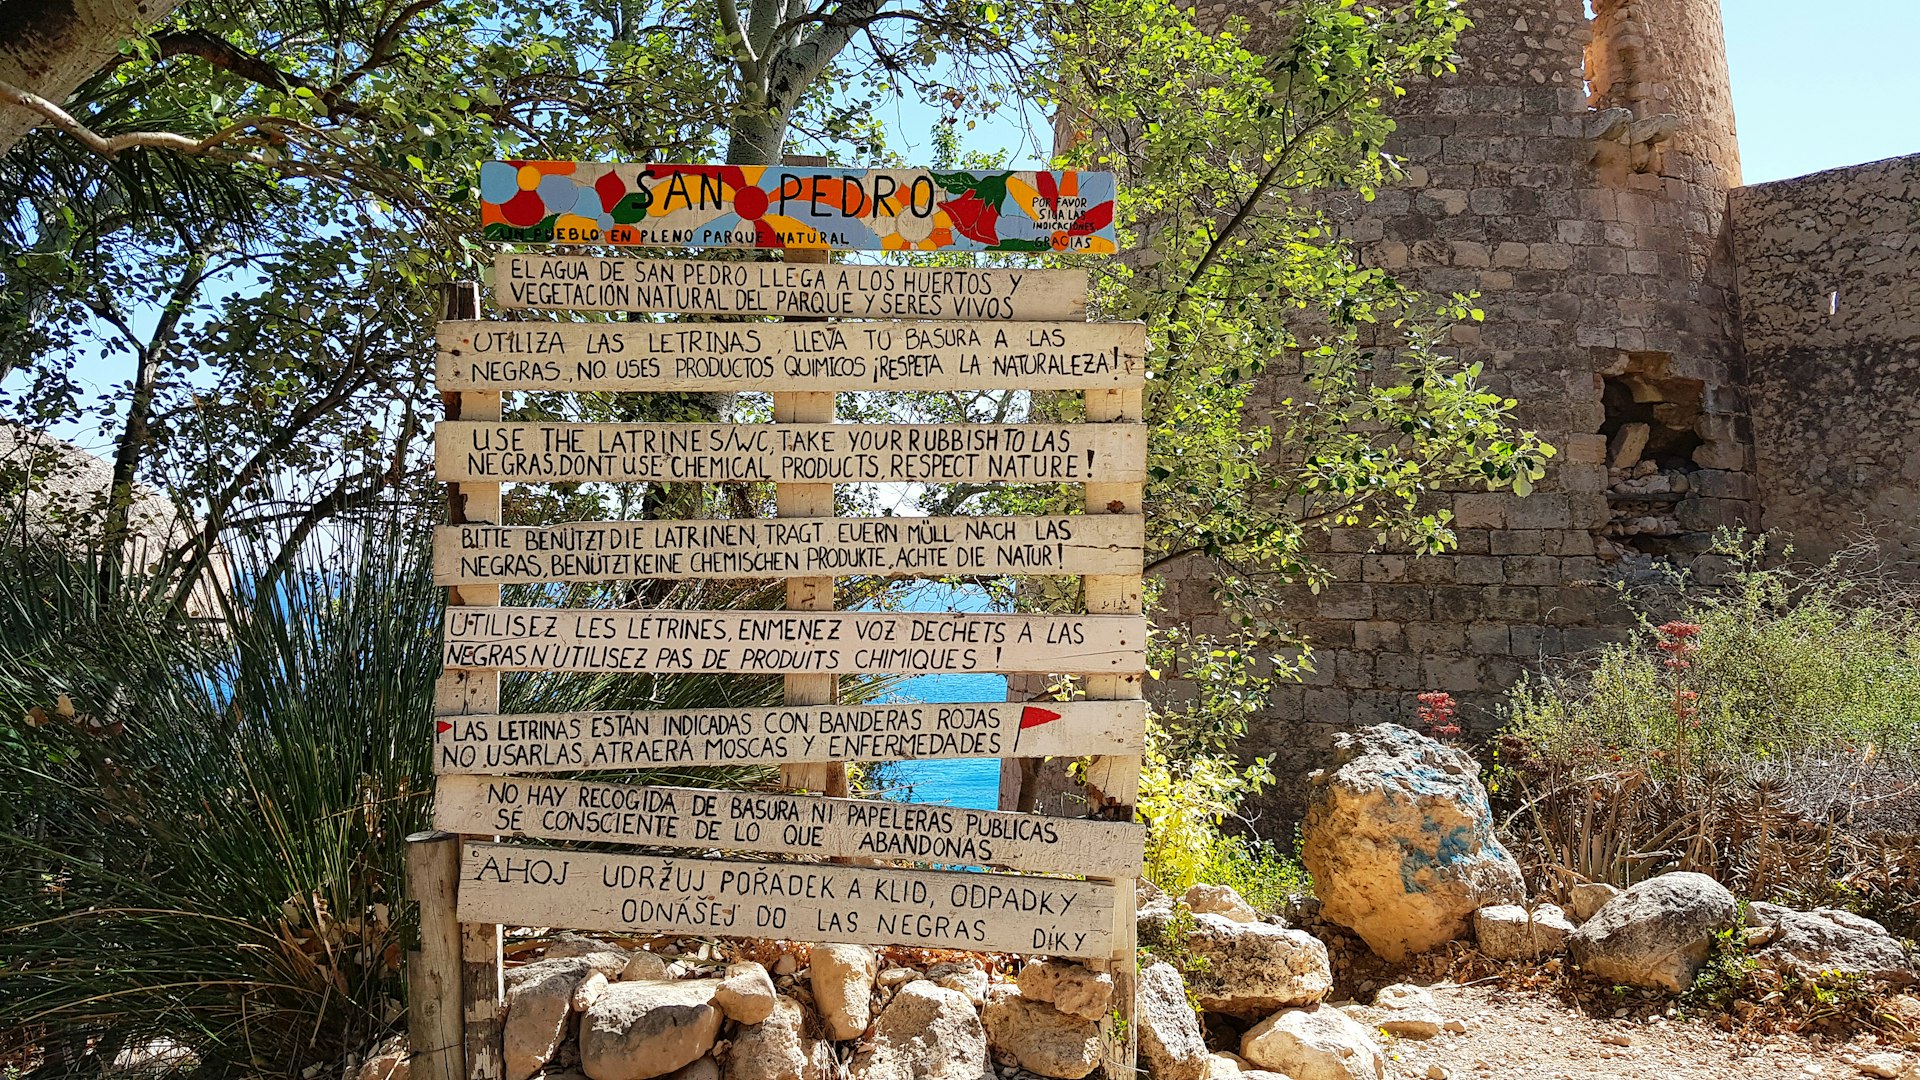 SAN PEDRO
UN PUEBLO EN PLENO PARQUE NATURAL
POR FAVOR
SIGA LAS
INDICACIONES
GRACIAS
EL AGUA DE SAN PEDRO LLEGA A LOS HUERTOS Y
VEGETACION NATURAL DEL PARQUE Y SERES VIVOS
UTILIZA LAS LETRINAS, LLEVA TU BASURA A LAS
NEGRAS, NO USES PRODUCTOS QUIMICOS ¡RESPETA LA NATURALEZA!
USE THE LATRINES/WC, TAKE YOUR RUBBISH TO LAS
NEGRAS, DONT USE CHEMICAL PRODUCTS, RESPECT NATURE!
BITTE BENÜTZT DIE LATRINEN, TRAGT EUERN MÜLL NACH LAS
NEGRAS, BENÜTZT KEINE CHEMISCHEN PRODUKTE, ACHTE DIE NATUR!
UTILISEZ LES LÉTRINES, ENMENEZ VOZ DECHETS A LAS
NEGRAS N'UTILISEZ PAS DE PRODUITS CHIMIQUES !
LAS LETRINAS ESTÁN INDICADAS CON BANDERAS ROJAS
NO USARLAS, ATRAERA MOSCAS Y ENFERMEDADES
NO HAY RECOGIDA DE BASURA NI PAPELERAS PUBLICAS
SE CONSCIENTE DE LO QUE ABANDONAS
AHOJ UDRŽUJ POŘADEK A KLID, ODPADKY
ODNÁSEJ DO LAS NEGRAS DÍKY